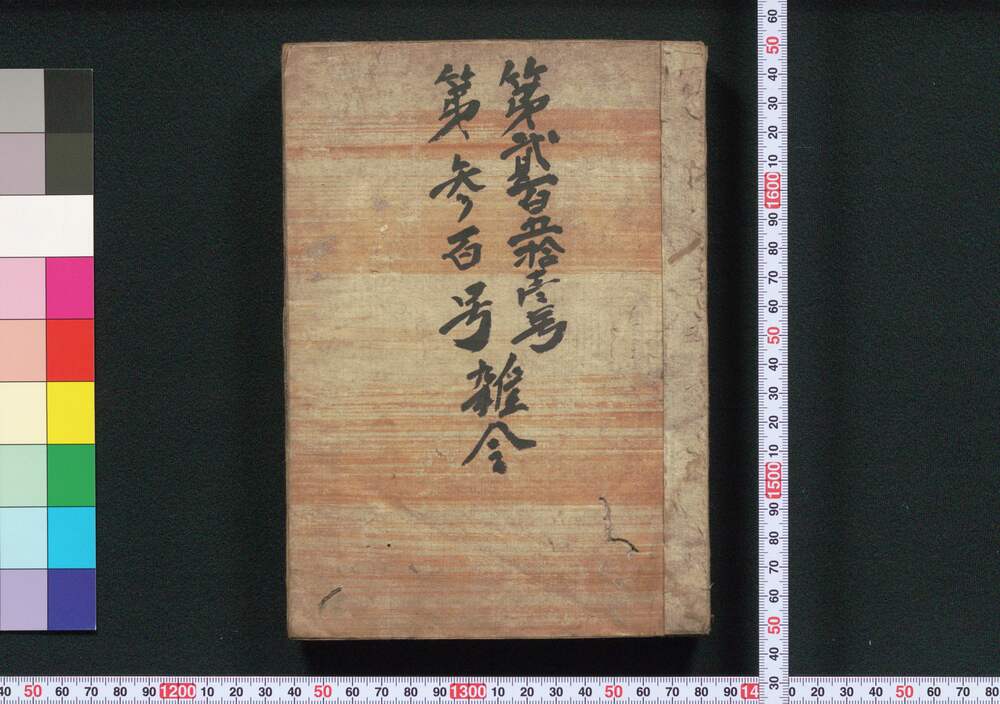 第貳百五拾壱号
第参百号
雑令
60
50
40
30
20
10
1600
90
80
70
60
50
40
30
20
10
1500
90
80
70
60
50
40
30
40 50 60 70 80 90 1200 10 20 30 40 50 60 70 80 90 1300 10 20 30 40 50 60 70 80 90 14 0 20 30 40 50 60 70 80